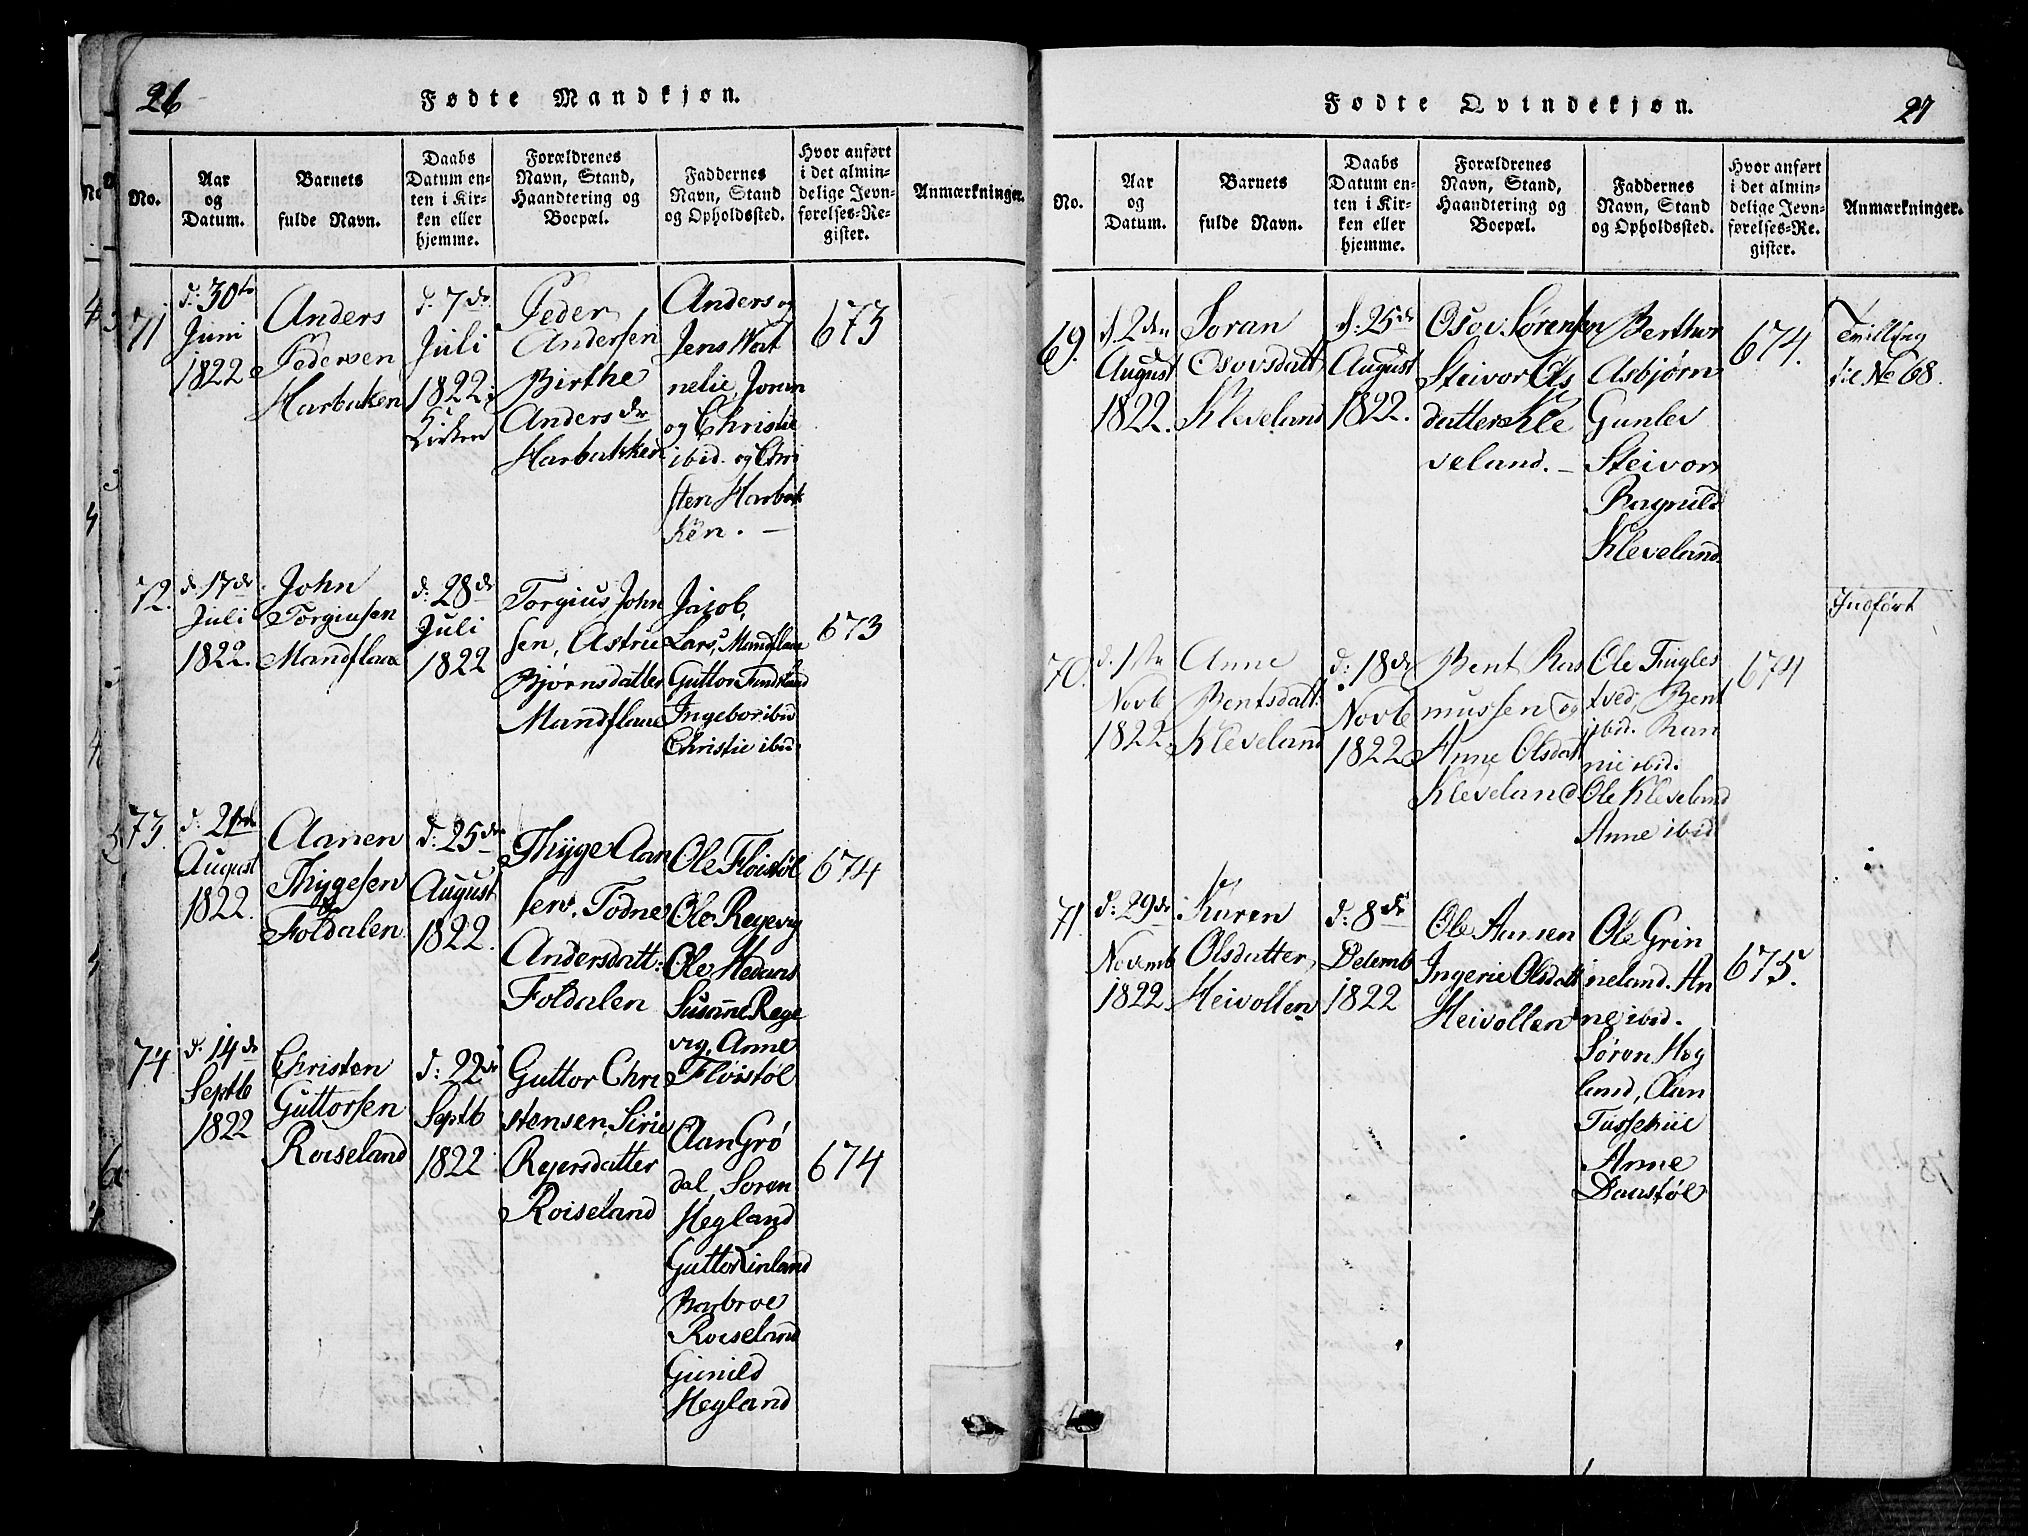 26
Fødte Mandkjøn.
No.
Aar
og
Datum.
Barnets
fulde Navn.
Daabs
Datum en-
ten i Kir-
ken eller
hjemme.
Forældrenes
Navn, Stand,
Haandtering og
Boepæl.
Faddernes
Navn, Stand
og Opholdssted.
Hvor anført
i det almin-
delige Jevn-
førelses-Re-
gister.
Anmærkninger.
71
d: 30te
Juni
1822
Anders
Pedersen
Harbakken
d: 7de
Juli
1822.
Kirken
Peder
Andersen
Birthe
Anders dr
Harbakken
Anders og
Jens
nelie, Joran
og Christie
ibid. og Chri
sten Harbak
ken. —
673
72.
d. 17de
Juli
1822.
John
Torgiusen
Mandflaae
d: 28de
Juli
1822
Torgius John
sen, Astrie
Bjørnsdatter
Mandflaae
Jacob,
Lars, Mandflaae
Guttor
Ingebor ibid
Christie ibid.
673
73.
d: 21de
August
1822.
Aanen
Thygesen
Foldalen
d: 25de
August
1822.
Thyge Aan
sen. Todne
Andersdatt:
Foldalen
Ole Floistøl
Ole Regevig
Ole Hedans
Susanne Rege
vig, Anne
Fløistøl
674
74.
d. 14de
Septb
1822
Christen
Guttorsen
Roiseland
d: 22de
Septb
1822
Guttor Chri
stensen Sirie
Rejersdatter
Roiseland
Aan Grø
dal, Soren
Hegland
Guttor Linland
Barbroe
Roiseland
Gunild
Hegland
674
Fødte Qvindekjøn.
27
No.
Aar
og
Datum.
Barnets
fulde Navn.
Daabs
Datum en-
ten i Kir-
ken eller
hjemme.
Forældrenes
Navn, Stand,
Haandtering og
Boepæl.
Faddernes
Navn, Stand
og Opholdssted.
Hvor anført
i det almin-
delige Jevn-
førelses-Re-
gister.
Anmærkninger.
69.
d 2den
August
1822.
Joran
Osovsdatt,
Kleveland
d: 25de
August
1822.
Osov Sørensen
Steivor Ols
datter Kle
veland. —
Berthor
Asbjørn
Gunlev
Steivor
Ragnild
Kleveland
674.
Tvilling
til No 68.
Indført
70.
d. 1ste
Novb
1822.
Anne
Bentsdatt.
Kleveland
d: 18de
Novb
1822
Bent Ras
mussen og
Anne Olsdatt
Kleveland
Ole Tingles
tved, Bent
ibid. Ran
nie ibid.
Ole Kleveland
Anne ibid
674
71.
d: 29de
Novmb
1822
Karen
Olsdatter
Heivollen
d: 8de
Decemb
1822
Ole Aansen
Ingerie Olsdatt
Heivollen
Ole Grin
neland. An
ne ibid.
Søren Heg
land, Aan
Tussehuie
Anne
Daastøl
675.